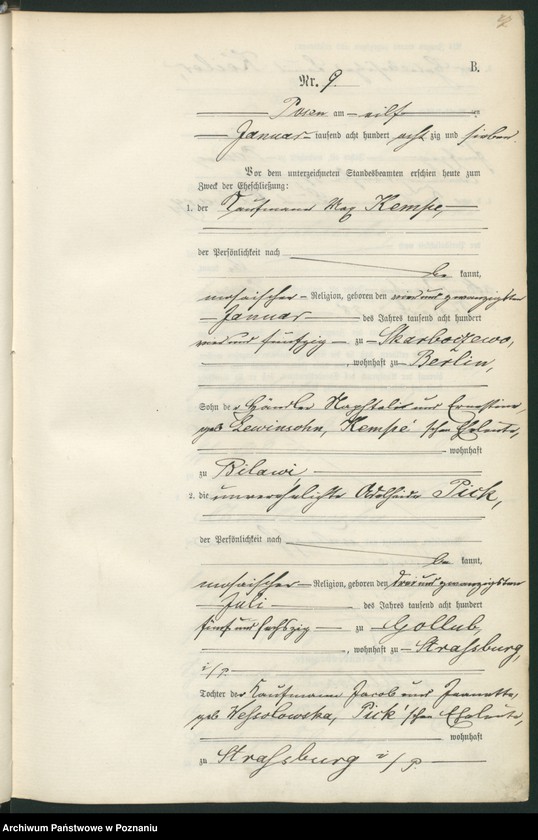 B.
Nr. 9.
Posen am eilf ten
Januar tausend acht hundert acht zig und sieben.
Vor dem unterzeichneten Standesbeamten erschien heute zum
Zweck der Eheschließung:
1. der Kaufmann Max Kempe,
der Persönlichkeit nach
be kannt,
mosaischer Religion, geboren den vierund zwanzigsten
Januar des Jahres tausend acht hundert
vierund fünfzig zu Skarboszewo,
, wohnhaft zu Berlin,
Sohn der Händler Naphtali und Ernestine,
geb. Lewinsohn, Kempe'schen Eheleute,
wohnhaft
zu Bilawi
2. die unverehelichte Adelheid Pick,
der Persönlichkeit nach
be kannt,
mosaischer Religion, geboren den dreiund zwanzigsten
Juli des Jahres tausend acht hundert
fünfundsechszig zu Gollub,
, wohnhaft zu Straßburg,
i/p.
Tochter der Kaufmann Jacob und Jeanette,
geb. Wessolowska, Pick'schen Eheleute,
wohnhaft
zu Straßburg i/p.
Archiwum Państwowe w Poznaniu